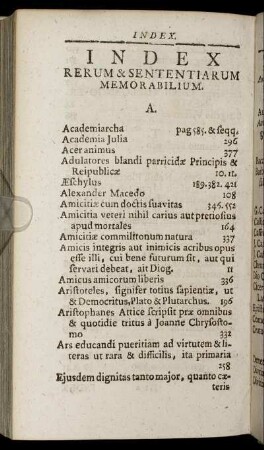 INDEX.
INDEX
RERUM & SENTENTIARUM
MEMORABILIUM.
A.
Academiarcha pag 585. & seqq.
Academia Julia 296
Acer animus 377
Adulatores blandi parricidæ Principis &
Reipublicæ 10. 11.
Æschylus 189. 382. 421
Alexander Macedo 108
Amicitiæ cum doctis suavitas 346. 552
Amicitia veteri nihil carius aut pretiosius
apud mortales 164
Amicitiæ commilitonum natura 337
Amicis integris aut inimicis acribus opus
esse illi, cui bene futurum sit, aut qui
servari debeat, ait Diog. 11
Amicus amicorum liberis 336
Aristoteles, signifer totius sapientiæ, ut
& Democritus, Plato & Plutarchus. 196
Aristophanes Attice scripsit præ omnibus
& quotidie tritus à Joanne Chrysosto-
mo 332
Ars educandi pueritiam ad virtutem & li-
teras ut rara & difficilis, ita primaria
258
Ejusdem dignitas tanto major, quanto ex-
teris